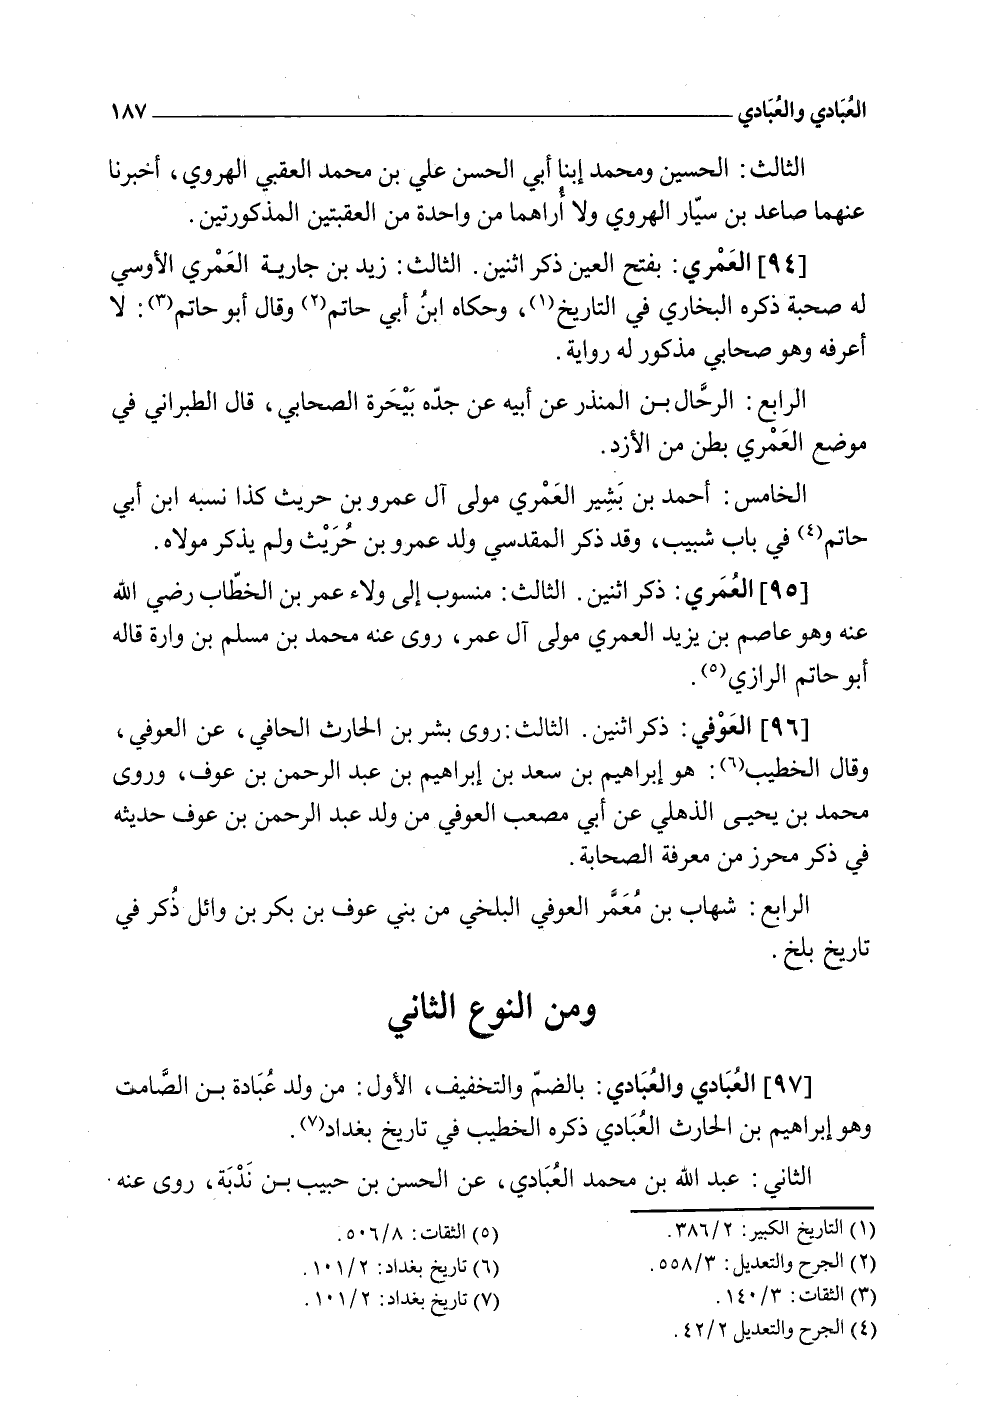 العُبَادي والعُبَادي ١٨٧
الثالث: الحسين ومحمد إبنا أبي الحسن علي بن محمد العقبي الهروي، أخبرنا
عنهما صاعد بن سيّار الهروي ولا أُراهما من واحدة من العقبتين المذكورتين.
[٩٤] العَمْري: بفتح العين ذكر اثنين. الثالث: زيد بن جارية العَمْري الأوسي
له صحبة ذكره البخاري في التاريخ(١)، وحكاه ابنُ أبي حاتم(٢) وقال أبو حاتم(٣): لا
أعرفه وهو صحابي مذكور له رواية.
الرابع: الرحَّال بن المنذر عن أبيه عن جدّه بَيْحَرة الصحابي، قال الطبراني في
موضع العَمْري بطن من الأزد.
الخامس: أحمد بن بَشِير العَمْري مولى آل عمرو بن حريث كذا نسبه ابن أبي
حاتم(٤) في باب شبيب، وقد ذكر المقدسي ولد عمرو بن حُرَيْث ولم يذكر مولاه.
[٩٥] العُمَري: ذكر اثنين. الثالث: منسوب إلى ولاء عمر بن الخطّاب رضي الله
عنه وهو عاصم بن يزيد العمري مولى آل عمر، روى عنه محمد بن مسلم بن وارة قاله
أبو حاتم الرازي(٥).
[٩٦] العَوْفي: ذكر اثنين. الثالث: روى بشر بن الحارث الحافي، عن العوفي،
وقال الخطيب(٦): هو إبراهيم بن سعد بن إبراهيم بن عبد الرحمن بن عوف، وروى
محمد بن يحيى الذهلي عن أبي مصعب العوفي من ولد عبد الرحمن بن عوف حديثه
في ذكر محرز من معرفة الصحابة.
الرابع: شهاب بن مُعَمَّر العوفي البلخي من بني عوف بن بكر بن وائل ذُكر في
تاريخ بلخ.
ومن النوع الثاني
[٩٧] العُبَادي والعُبَادي: بالضمّ والتخفيف، الأول: من ولد عُبَادة بن الصَّامت
وهو إبراهيم بن الحارث العُبَادي ذكره الخطيب في تاريخ بغداد(٧).
الثاني: عبد الله بن محمد العُبَادي، عن الحسن بن حبيب بن نَدْبَة، روى عنه
(١) التاريخ الكبير: ٣٨٦/٢.
(٢) الجرح والتعديل: ٥٥٨/٣.
(٣) الثقات: ١٤٠/٣.
(٤) الجرح والتعديل ٤٢/٢.
(٥) الثقات: ٥٠٦/٨.
(٦) تاريخ بغداد: ١٠١/٢.
(٧) تاريخ بغداد: ١٠١/٢.